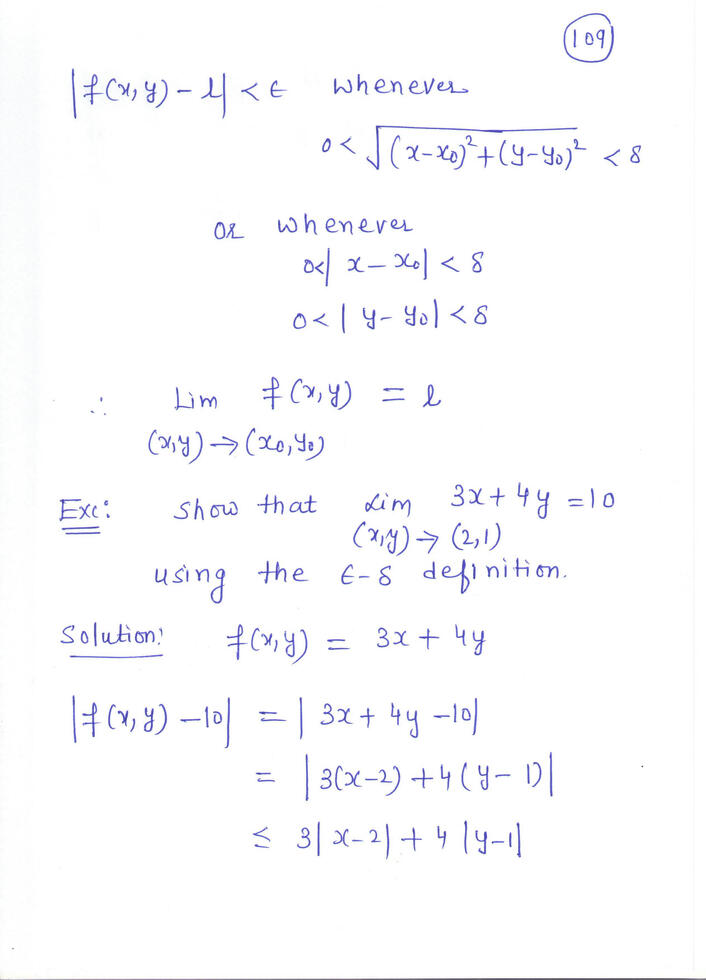 109
|f(x,y) - l| < ϵ whenever
0 < √((x-x₀)²+(y-y₀)²) < δ
or whenever
0<| x - x₀| < δ
0 < | y - y₀| < δ
∴ Lim f(x,y) = l
(x,y) → (x₀,y₀)
Exc: show that Lim 3x + 4y = 10
(x,y) → (2,1)
using the ϵ-δ definition.
Solution: f(x,y) = 3x + 4y
|f(x,y) - 10| = | 3x + 4y - 10|
= | 3(x-2) + 4(y-1)|
≤ 3| x-2| + 4 |y-1|